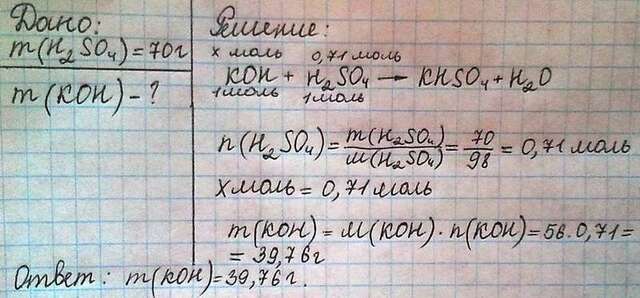 Дано:
m(H₂SO₄)=70г
m(KOH)-?
Решение:
x моль 0,71моль
KOH + H₂SO₄ → KHSO₄ + H₂O
1моль 1моль
n(H₂SO₄)= m(H₂SO₄)/M(H₂SO₄) = 70/98 = 0,71 моль
X моль = 0,71 моль
m(KOH) = M(KOH) · n(KOH)=56·0,71=
= 39,76г
Ответ: m(KOH)=39,76г.